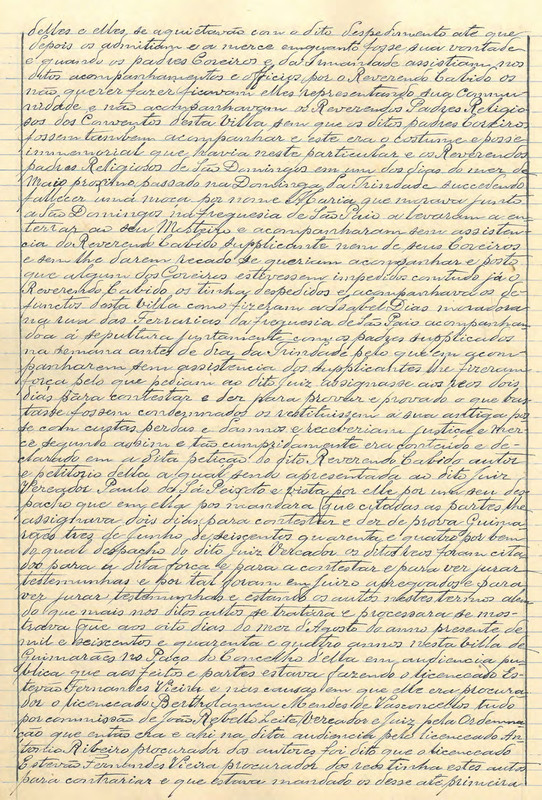 delles e elles se aquietavão com o dito despedimento até que
depois os admitiam e a merce emquanto fosse sua vontade
e quando os padres Coreiros e da Irmandade assistiam nos
ditos acompanhamentos e officios por o Reverendo Cabido os
não querer fazer ficavam elles representando sua commu
nidade e não acompanhavam os Reverendos Padres Religio
sos dos Conventos desta Villa sem que os ditos padres Coreiros
fossem tambem acompanhar e este era o costume e posse
immemorial que havia neste particular e os Reverendos
padres Religiosos de São Domingos em um dos dias do mez de
Maio proximo passado na Dominga da Trindade succedendo
fallecer uma moça por nome Maria que morava junto
a São Domingos na freguesia de São Paio a levaram a en
terrar ao seu Mosteiro e acompanharam sem assisten
cia do Reverendo Cabido supplicante nem de seus Coreiros
e sem lhe darem recado se queriam acompanhar e posto
que algum dos Coreiros estevessem impedidos comtudo já o
Reverendo Cabido os tinha despedidos e acompanhava os de
functos desta Villa como fizeram a Isabel Dias moradora
na rua das Ferrarias da freguesia de São Paio acompanhan
doa á sepultura juntamente com os padres supplicados
na semana antes de dia da Trindade pelo que em acom
panharem sem assistencia dos supplicantes lhe fizeram
força pelo que pediam ao dito juiz assignasse aos reos dois
dias para contestar e dez para provar e provado o que bas
tasse fossem condemnados os restituissem á sua antiga pos
se com custas perdas e damnos e receberiam justiça e mer
cê segundo assim e tão cumpridamente era contendo e de
clarado em a dita petição do dito Reverendo Cabido autor
e petitorio della a qual sendo apresentada ao dito Juiz
Vereador Paulo de Sá Peixoto e vista por elle por um seu des
pacho que em ella poz mandara que citadas as partes lhe
assignava dois dias para contestar e dez de prova Guima
rães tres de Junho de seiscentos quarenta e quatro por bem
do qual despacho do dito Juiz Vereador os ditos reos foram cita
dos para a dita força e para a contestar e para ver jurar
testemunhas e por tal foram em Juizo apregoados e para
ver jurar testemunhas e estando os autos nestes termos alem
do que mais nos ditos autos se tratára e processara se mos
trava que aos oito dias do mez d'Agosto do anno presente de
mil e seiscentos e quarenta e quatro annos nesta villa de
Guimarães no Paço do Concelho d'ella em audiencia pu
blica que aos feitos e partes estava fazendo o licenceado Es
tevão Fernandes Vieira e nas causas em que elle era procura
dor o licenceado Bertholameu Mendes de Vasconcellos tudo
por commissão de João Rebello Leite Vereador e Juiz pela Ordena
ção que então era e ahi na dita audiencia pelo licenceado An
tonio Ribeiro procurador dos autores foi dito que o licenceado
Estevão Fernandes Vieira procurador dos reos tinha estes autos
para contrariar e que estava mandado os desse até primeira